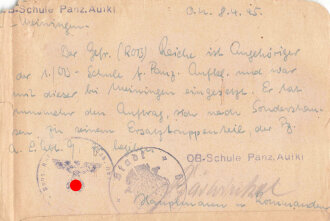 OB-Schule Panz. Aufkl
Meiningen
O.U. 8.4.45.
Der Gefr. (ROB) Reiche ist Angehöriger
der 1./OB-Schule f. Panz. Aufkl. und war
mit dieser bei Meiningen eingesetzt. Er hat
nunmehr den Auftrag, sich nach Sondershau-
sen, zu seinem Ersatztruppenteil der Pz.
A. E. Abt. 9
OB-Schule Panz. Aufkl
Hauptmann u. Kommandeur